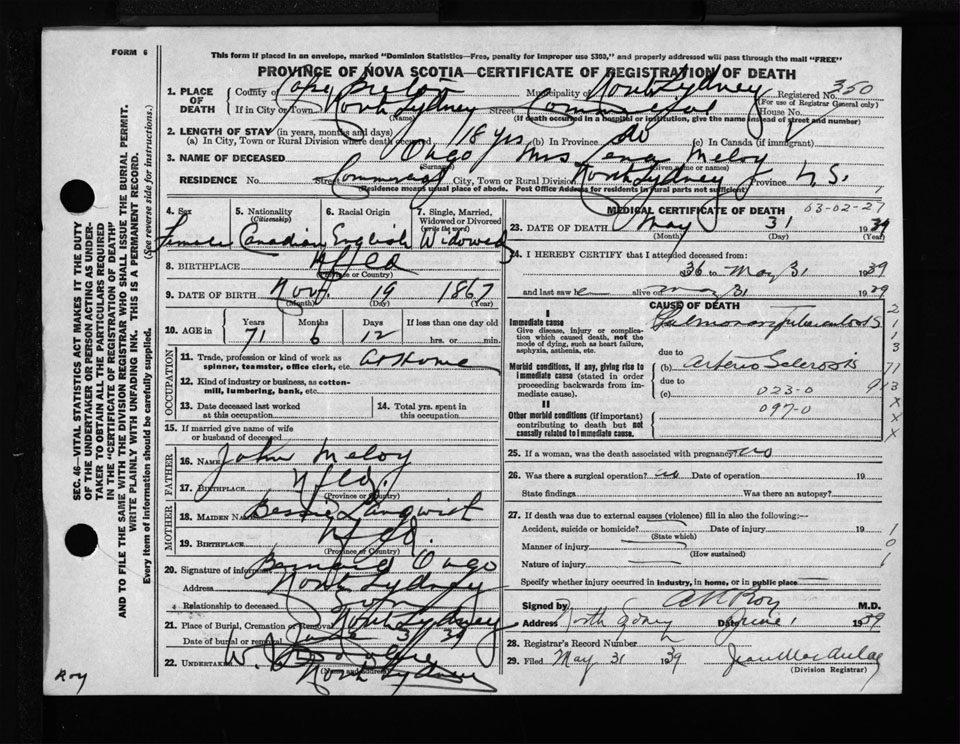 FORM 6
This form if placed in an envelope, marked "Dominion Statistics—Free, penalty for improper use $300," and properly addressed will pass through the mail "FREE"
PROVINCE OF NOVA SCOTIA—CERTIFICATE OF REGISTRATION OF DEATH
1. PLACE OF DEATH
County of Cape Breton Municipality of North Sydney Registered No. 350
(For use of Registrar General only)
If in City or Town North Sydney Street Commercial House No.
(Name) (If death occurred in a hospital or institution, give the name instead of street and number)
2. LENGTH OF STAY (in years, months and days)
(a) In City, Town or Rural Division where death occurred 18 yrs (b) In Province do (c) In Canada (if immigrant)
3. NAME OF DECEASED Mrs Lena Meloy
(Surname) (Given name or names)
RESIDENCE No. Street Commercial City, Town or Rural Division North Sydney Province N.S.
(Residence means usual place of abode. Post Office Address for residents in rural parts not sufficient)
4. Sex
Female
5. Nationality
(Citizenship)
Canadian
6. Racial Origin
English
7. Single, Married, Widowed or Divorced
(write the word)
Widowed
8. BIRTHPLACE Nfld
(Province or Country)
9. DATE OF BIRTH Nov. 19 1867
(Month) (Day) (Year)
10. AGE in Years Months Days If less than one day old
71 6 12 hrs. or min.
OCCUPATION
11. Trade, profession or kind of work as spinner, teamster, office clerk, etc. at Home
12. Kind of industry or business, as cotton-mill, lumbering, bank, etc.
13. Date deceased last worked at this occupation
14. Total yrs. spent in this occupation
15. If married give name of wife or husband of deceased
FATHER
16. NAME John Meloy
17. BIRTHPLACE Nfld.
(Province or Country)
MOTHER
18. MAIDEN NAME Bessie
19. BIRTHPLACE Nfld.
(Province or Country)
20. Signature of informant
Address North Sydney
Relationship to deceased son
21. Place of Burial, Cremation or Removal North Sydney
Date of burial or removal June 2 39
22. UNDERTAKER
North Sydney
(Name and Address)
MEDICAL CERTIFICATE OF DEATH 03-02-27
23. DATE OF DEATH May 31 1939
(Month) (Day) (Year)
24. I HEREBY CERTIFY that I attended deceased from:
36 to May 31 1939
and last saw alive on May 31 1939
CAUSE OF DEATH
I
Immediate cause
Give disease, injury or complication which caused death, not the mode of dying, such as heart failure, asphyxia, asthenia, etc.
Pulmonary Tuberculosis
due to
Morbid conditions, if any, giving rise to immediate cause (stated in order proceeding backwards from immediate cause).
(b) Arterio Sclerosis
due to
(c) 023-0
II
Other morbid conditions (if important) contributing to death but not causally related to immediate cause.
097-0
2
1
1
3
71
x
x
x
25. If a woman, was the death associated with pregnancy? no
26. Was there a surgical operation? no Date of operation 19
State findings Was there an autopsy?
27. If death was due to external causes (violence) fill in also the following:—
Accident, suicide or homicide? Date of injury 19
(State which)
Manner of injury
(How sustained)
Nature of injury
Specify whether injury occurred in industry, in home, or in public place
1
0
1
Signed by A R Roy M.D.
Address North Sydney Date June 1 1939
28. Registrar's Record Number
29. Filed May 31 1939
(Division Registrar)
SEC. 46—VITAL STATISTICS ACT MAKES IT THE DUTY
OF THE UNDERTAKER OR PERSON ACTING AS UNDER-
TAKER TO OBTAIN ALL THE PARTICULARS REQUIRED
IN THE "CERTIFICATE OF REGISTRATION OF DEATH"
AND TO FILE THE SAME WITH THE DIVISION REGISTRAR WHO SHALL ISSUE THE BURIAL PERMIT.
WRITE PLAINLY WITH UNFADING INK. THIS IS A PERMANENT RECORD.
Every item of information should be carefully supplied. (See reverse side for instructions.)
Roy